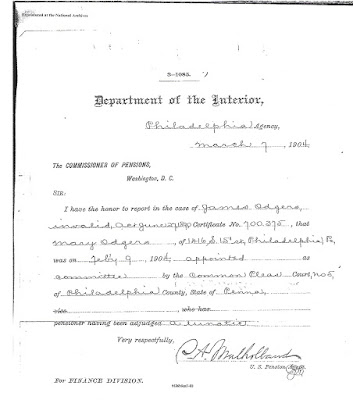 Reproduced at the National Archives
3-1085.
Department of the Interior,
Philadelphia Agency,
March 7, 1904
The COMMISSIONER OF PENSIONS,
Washington, D. C.
SIR:
I have the honor to report in the case of James Odgers,
invalid, Act June 27, 1890 Certificate No. 700,375, that
Mary Odgers, of 1816 S. 15" st, Philadelphia, Pa,
was on Feby 9, 1904, appointed as
committee by the Common Pleas Court, No 5,
of Philadelphia County, State of Penna,
vice , who has
pensioner having been adjudged a lunatic.
Very respectfully,
Mulholland
U. S. Pension Agent.
For FINANCE DIVISION.